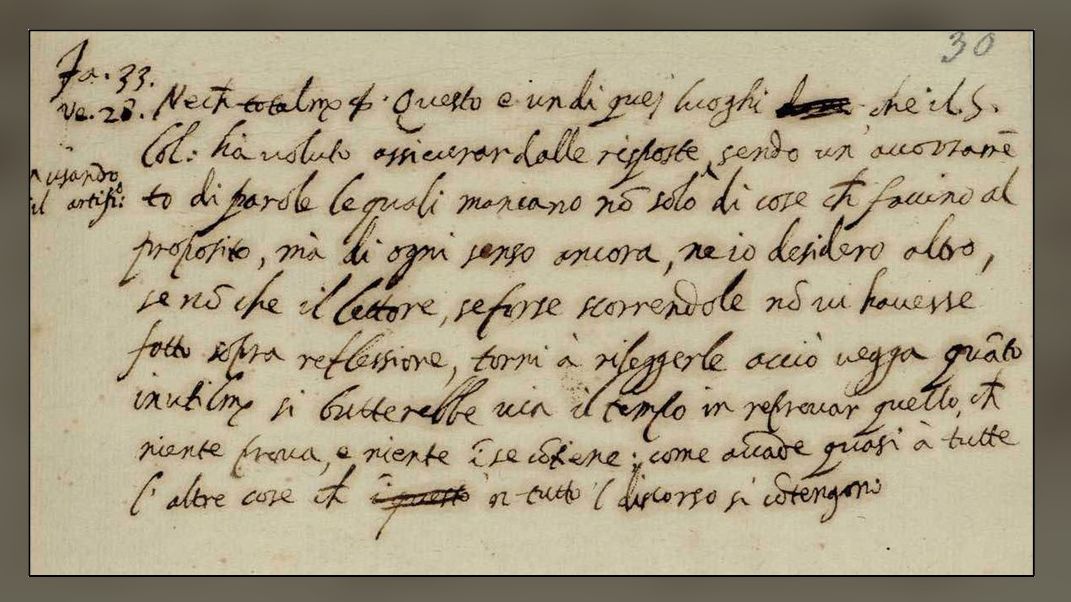 30
Fa. 33.
ve. 28. Nech totalmẽ &. Questo è un di quei luoghi che il S.
Col: hà uoluto assicurar dalle risposte, sendo un' accozzamẽ
usando
il artifi:
to di parole le quali mancano nõ solo di cose ch̃ faccino al
proposito, mà di ogni senso ancora, ne io desidero altro,
se nõ che il lettore, se forse scorrendole nõ ui hauesse
fatto sopra reflessione, torni à rileggerle acciò uegga quãto
inutilmẽ si butterebbe uia il tempo in reprouar quello, ch̃
niente proua, e niente ĩ se cõtiene: come accade quasi à tutte
l' altre cose ch̃ ĩ questo in tutto 'l discorso si cõtengono